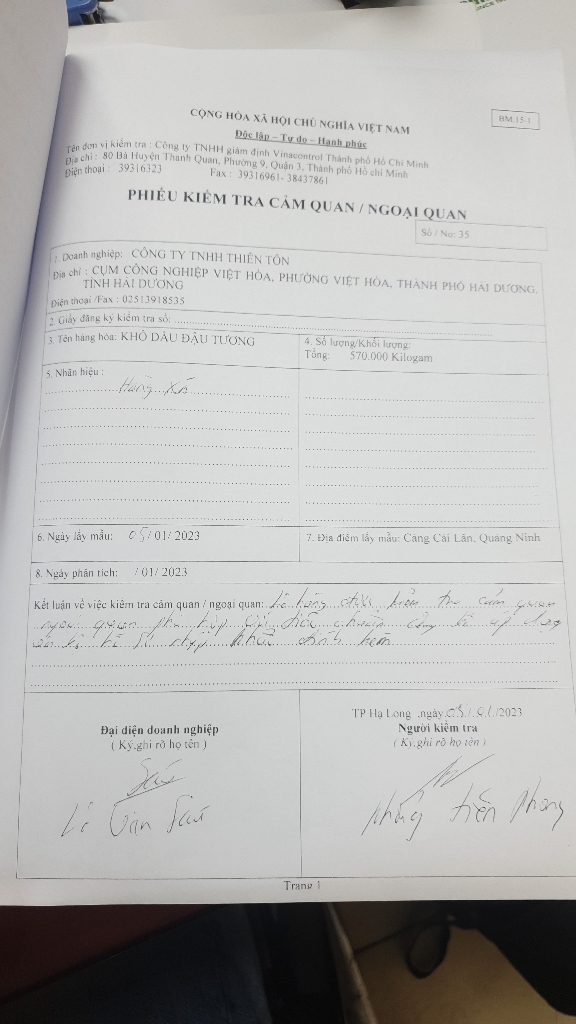 CỘNG HÒA XÃ HỘI CHỦ NGHĨA VIỆT NAM
BM.15-1
Độc lập – Tự do – Hạnh phúc
Tên đơn vị kiểm tra : Công ty TNHH giám định Vinacontrol Thành phố Hồ Chí Minh
Địa chỉ : 80 Bà Huyện Thanh Quan, Phường 9, Quận 3, Thành phố Hồ chí Minh
Điện thoại : 39316323 Fax : 39316961- 38437861
PHIẾU KIỂM TRA CẢM QUAN / NGOẠI QUAN
Số / No: 35
1. Doanh nghiệp: CÔNG TY TNHH THIÊN TÔN
Địa chỉ : CỤM CÔNG NGHIỆP VIỆT HÒA, PHƯỜNG VIỆT HÒA, THÀNH PHỐ HẢI DƯƠNG,
TỈNH HẢI DƯƠNG
Điện thoại /Fax : 02513918535
2. Giấy đăng ký kiểm tra số:
3. Tên hàng hóa: KHÔ DẦU ĐẬU TƯƠNG
4. Số lượng/Khối lượng:
Tổng: 570.000 Kilogam
5. Nhãn hiệu :
Hàng Xá
6. Ngày lấy mẫu: 05/01/ 2023
7. Địa điểm lấy mẫu: Cảng Cái Lân, Quảng Ninh
8. Ngày phân tích: /01/ 2023
Kết luận về việc kiểm tra cảm quan / ngoại quan: Lô hàng được kiểm tra cảm quan
ngoại quan phù hợp với tiêu chuẩn công bố áp dụng
và hồ sơ nhập khẩu đính kèm
TP Hạ Long ,ngày 05/01/2023
Đại diện doanh nghiệp
( Ký,ghi rõ họ tên )
Người kiểm tra
( Ký,ghi rõ họ tên )
Lê Văn Sáu
Phùng Tiến Phong
Trang 1